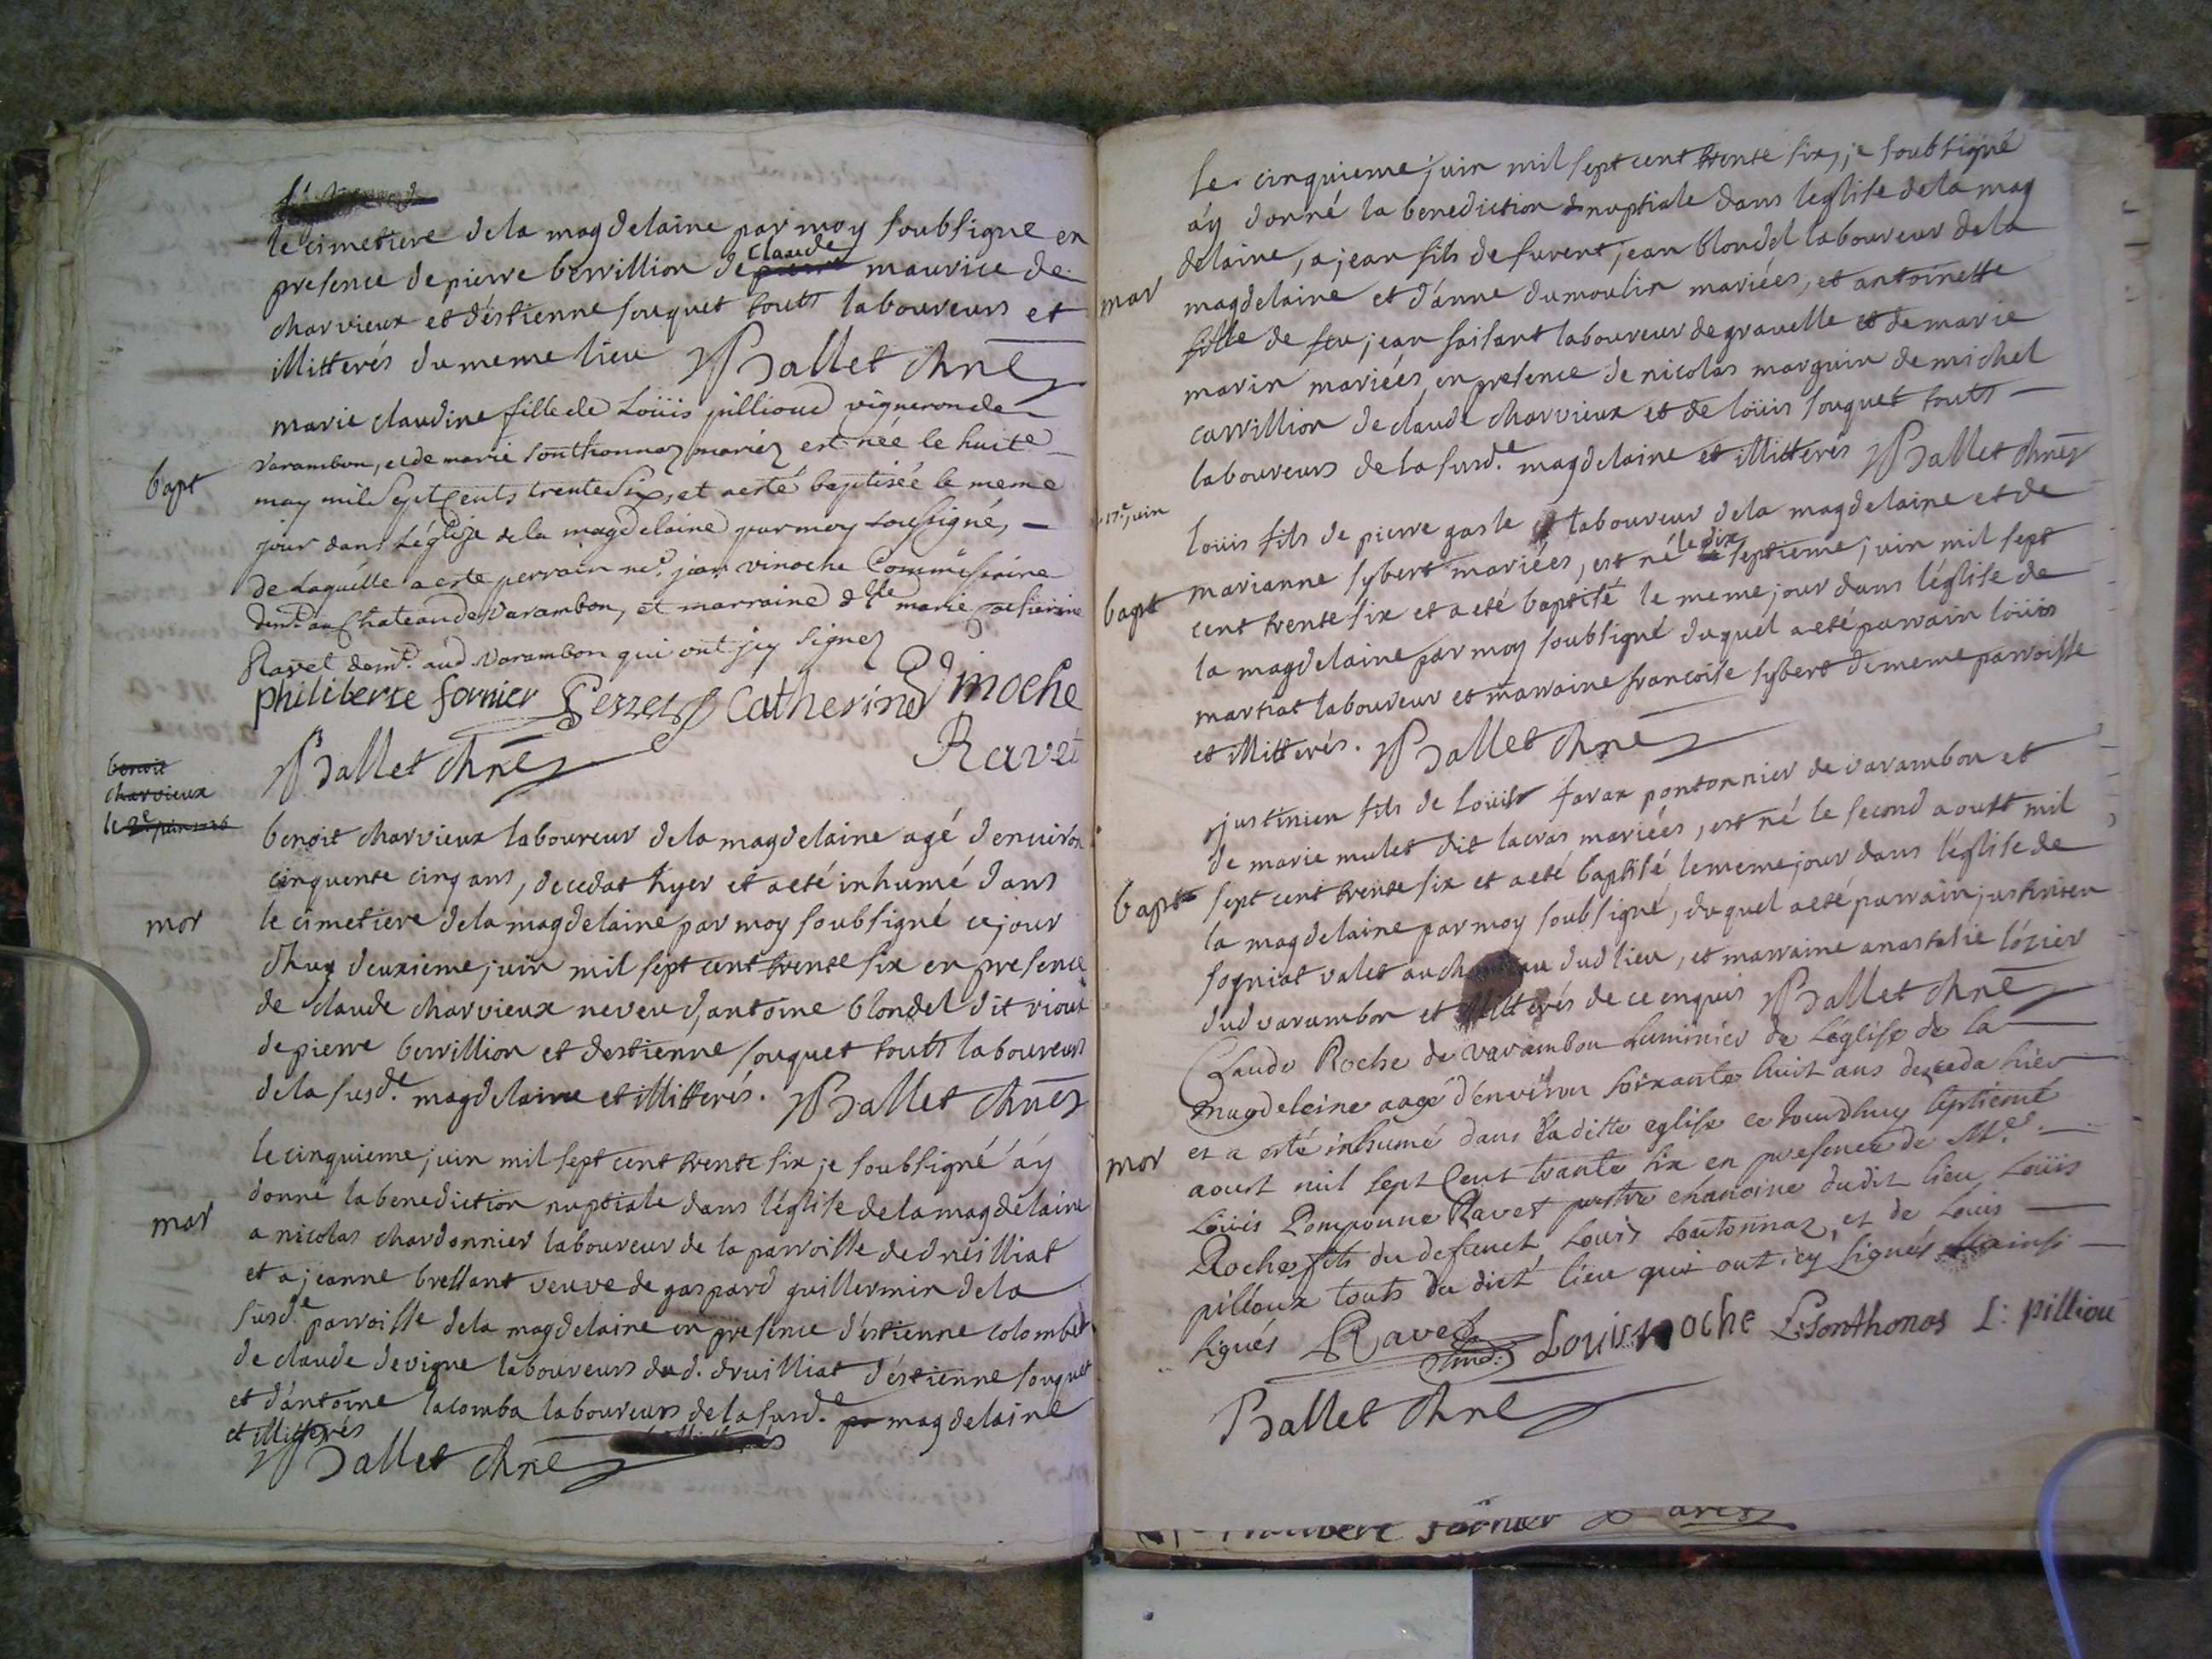 le cimetiere dela magdelaine par moy soubsigne en
presence de pierre berrillion de claude maurice de
charvieux et d'éstienne souquet touts laboureurs et
illitterés du meme lieu Ballet chne
bapt
marie claudine fille de Loüis pillioud vigneron de
varambon, et de marie sonthonnaz mariéz est née le huite
may mil Sept Cents trente Six, et aesté baptisée le meme
jour dans Léglize de la magdelaine par moy soussigné,
de Laquélle a este perrain me jean vinoche Commissaire
demt au Chateau de varambon, et marraine dlle marie
Ravet demt aud varambon qui ont icy signez
philiberte fornier Perret Catherine vinoche
Ravet
Ballet chne
benoit
charvieux
le 2e juin 1736
mor
benoit charvieux laboureur dela magdelaine agé d'environ
cinquente cinq ans, decedat hyer et a eté inhumé dans
le cimetiere dela magdelaine par moy soubsigné cejour
dhuy deuxieme juin mil sept cent trente six en presence
de claude charvieux neveu d'antoine blondel dit vioux
de pierre berrillion et destienne souquet touts laboureurs
dela susd.e magdelaine et illitterés. Ballet chne
mar
le cinquieme juin mil sept cent trente six je soubsigné áy
donné la benediction nuptiale dans l'église dela magdelaine
a nicolas chardonnier laboureur de la parroisse de druilliat
et a jeanne brellant veuve de gaspard guillermin dela
susd.e parroisse dela magdelaine en presence d'éstienne colombet
de claude devigne laboureurs dud. druilliat d'éstienne souquet
et d'ántoine lacomba laboureurs dela susd.e magdelaine
et illitterés
Ballet chne
mar
le cinquieme juin mil sept cent trente six, je soubsigné
áy donné la benediction nuptiale dans leglise dela mag
delaine, a jean fils de furent jean blondel laboureur dela
magdelaine et d'ánne dumoulin mariées, et antoinette
fille de feu jean faisant laboureur de gravelle et de marie
marin mariées en presence de nicolas marguin de michel
carrillion de claude charvieux et de loüis souquet touts
laboureurs de la susd.e magdelaine et illitterés Ballet chne
17e juin
bapt
loüis fils de pierre gasle laboureur dela magdelaine et de
marianne sybert mariées, est né le dix septieme juin mil sept
cent trente six et a eté baptisé le meme jour dans l'église de
la magdelaine par moy soubsigné duquel a eté parrain loüis
martiat laboureur et marraine francoise sybert de meme parroisse
et illitterés. Ballet chne
bapt
justinien fils de loüis favax pontonnier de varambon et
de marie mulet dit lacras mariées, est né le second aoust mil
sept cent trente six et a eté baptisé le meme jour dans l'église de
la magdelaine par moy soubsigné, duquel a eté parrain justinien
sogniat valet au chateau dud lieu, et marraine anastasie lózier
dud varambon et illitterés de ce enquis Ballet chne
mor
Claude Roche de varambon Luminier de Léglise de la
magdeleine aagé d'environ soixante huit ans deceda hier
et a esté inhumé dans laditte eglise ce Jourdhuy septieme
aoust mil sept Cent trante six en presence de Mre
Loüis Pomponne Ravet prestre chanoine dudit lieu, Loüis
Roche fils du defunct, Louis sontonnaz, et de Louis
pilloux touts du dict lieu qui ont icy signés
signés Ravet Louis roche L: Sonthonas L: pilliou
Ballet chne
fornier